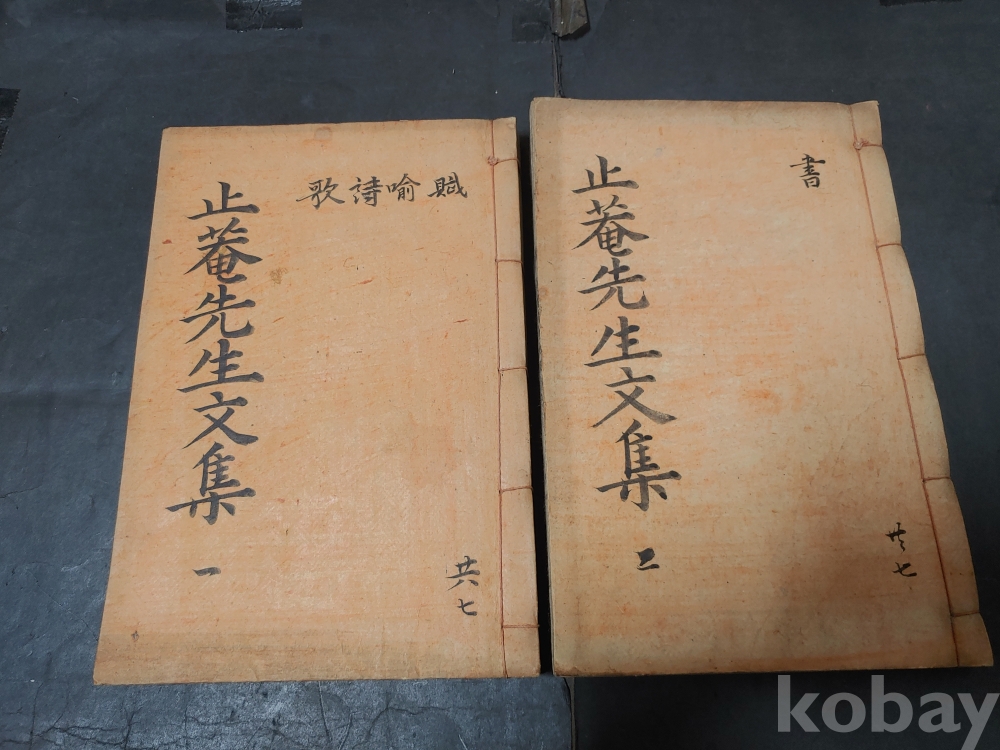 賦喩詩歌
止菴先生文集 一
共七
書
止菴先生文集 二
共七
kobay